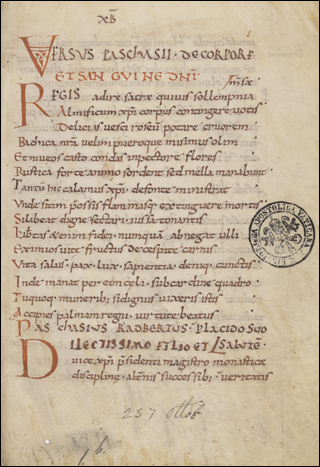 XIIII
VERSUS PASCHASII · DE CORPORE
ET SANGUINE DNI
REGIS adire sacrę quiuis sollempnia mensę
Almificum xpi corpus contingere uotis
Delicus uesci roseū potare cruorem
Rustica forte animo sordent sed mella manabunt
Tantū hic calamus xpi de fonte ministrat
Unde sitim possis flammasq; extinguere mortis
Si libeat digne sectari iussa tonantis
Libas ęenim fidei nunquā abnegat ulli
Eximios uitę fructus de cespite carnis
Vita salus · pax · lux · sapientia deniq; cunctis
Inde manat per eum celi sub cardine quadro
Tuquoq; munerib; si dignus uixeris istis
Accipies palmam regni uirtute beatus
PASCHASIUS RADBERTUS · PLACIDO SUO
DILECTISSIMO FILIO ET SALUTĒ
uice xpi p̄sidenti magistro monasticę
disciplinę · alternis successib; ueritatis
BIBLIOTHECA APOSTOLICA VATICANA
257 Ottob